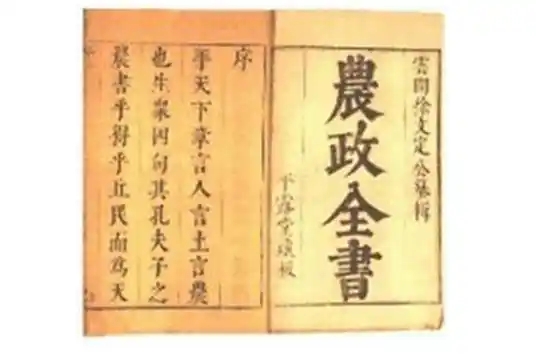 雲間徐文定公纂輯
農政全書
平露堂板
序
平天下章言人言土言農
也生衆四句其孔夫子之
農書乎得乎丘民而為天